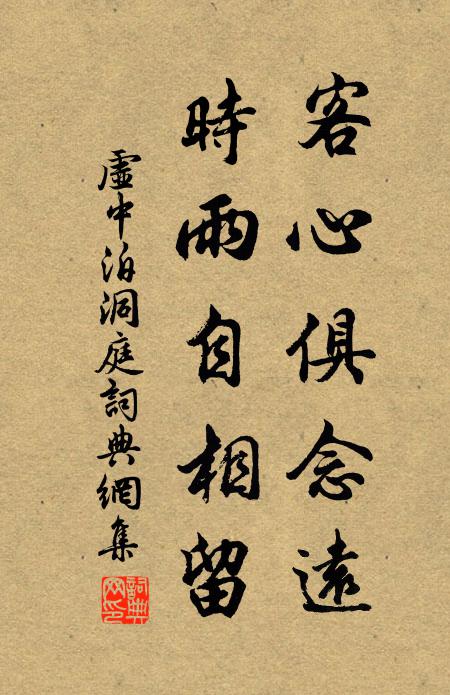 客心俱念遠
時雨自相留
虛中泊洞庭詞典網集
詞典網印